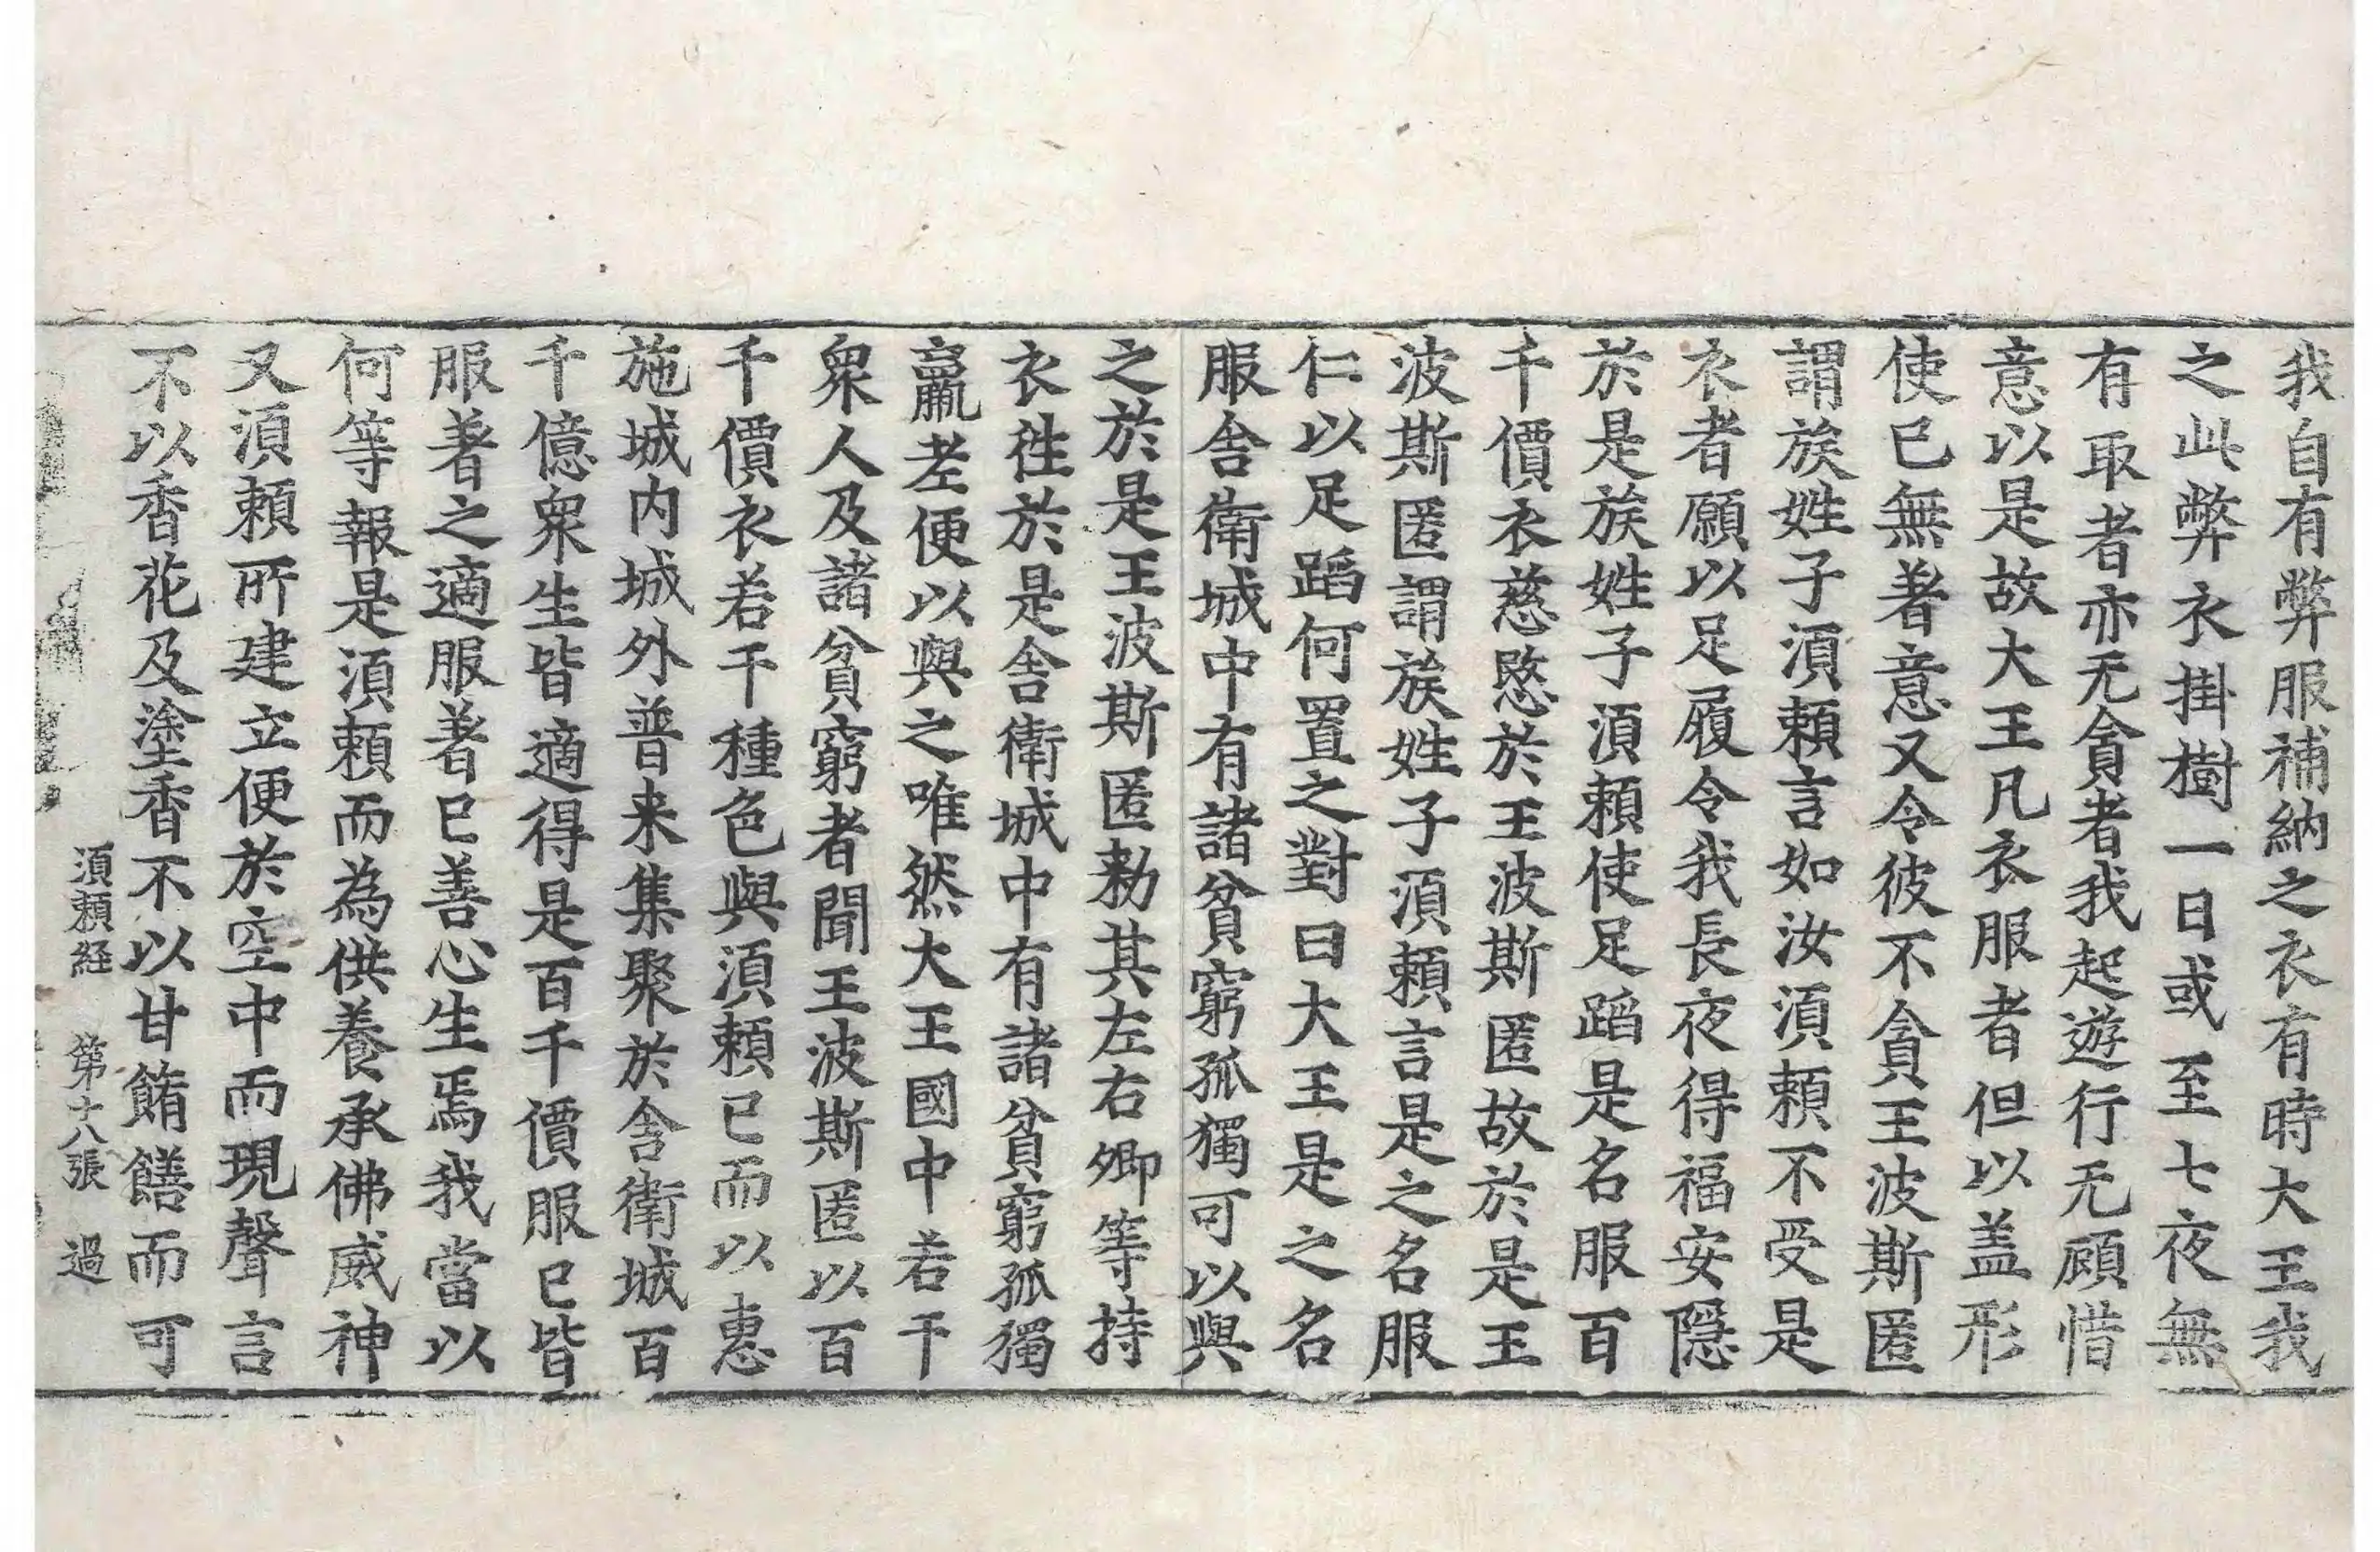 我自有弊服補納之衣有時大王我
之此弊衣掛樹一日或至七夜無
有取者亦无貪者我起遊行无顧惜
意以是故大王凡衣服者但以盖形
使已無著意又令彼不貪王波斯匿
謂族姓子湏頼言如汝湏頼不受是
衣者願以足履令我長夜得福安隱
於是族姓子湏頼使足蹈是名服百
千價衣慈愍於王波斯匿故於是王
波斯匿謂族姓子湏頼言是之名服
仁以足蹈何置之對曰大王是之名
服舎衛城中有諸貧窮孤獨可以與
之於是王波斯匿勑其左右卿等持
衣徃於是舎衛城中有諸貧窮孤獨
羸老便以與之唯然大王國中若干
衆人及諸貧窮者聞王波斯匿以百
千價衣若干種色與湏頼已而以惠
施城内城外普来集聚於舎衛城百
千億衆生皆適得是百千價服已皆
服著之適服著已善心生焉我當以
何等報是湏頼而為供養承佛威神
又湏頼所建立便於空中而現聲言
不以香花及塗香不以甘餚饍而可
湏頼経 第十八張 過